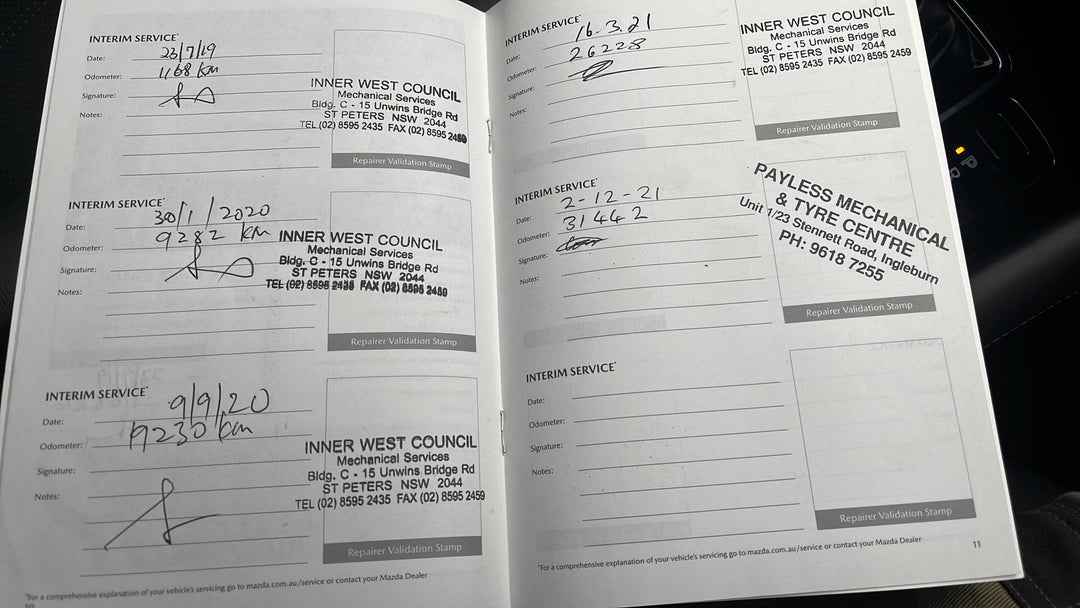 INTERIM SERVICE*
Date: 23/7/19
Odometer: 1168 km
Signature:
Notes:
INNER WEST COUNCIL
Mechanical Services
Bldg. C - 15 Unwins Bridge Rd
ST PETERS NSW 2044
TEL (02) 8595 2435 FAX (02) 8595
Repairer Validation Stamp
INTERIM SERVICE*
Date: 30/1/2020
Odometer: 9282 km
Signature:
Notes:
INNER WEST COUNCIL
Mechanical Services
Bldg. C - 15 Unwins Bridge Rd
ST PETERS NSW 2044
TEL (02) 8595 2435 FAX (02) 8595 2459
Repairer Validation Stamp
INTERIM SERVICE*
Date: 9/9/20
Odometer: 19230 km
Signature:
Notes:
INNER WEST COUNCIL
Mechanical Services
Bldg. C - 15 Unwins Bridge Rd
ST PETERS NSW 2044
TEL (02) 8595 2435 FAX (02) 8595 2459
Repairer Validation Stamp
*For a comprehensive explanation of your vehicle's servicing go to mazda.com.au/service or contact your Mazda Dealer
10
INTERIM SERVICE*
Date: 16.3.21
Odometer: 26228
Signature:
Notes:
INNER WEST COUNCIL
Mechanical Services
Bldg. C - 15 Unwins Bridge Rd
ST PETERS NSW 2044
TEL (02) 8595 2435 FAX (02) 8595 2459
Repairer Validation Stamp
INTERIM SERVICE*
Date: 2-12-21
Odometer: 31442
Signature:
Notes:
PAYLESS MECHANICAL
& TYRE CENTRE
Unit 1/23 Stennett Road, Ingleburn
PH: 9618 7255
Repairer Validation Stamp
INTERIM SERVICE*
Date:
Odometer:
Signature:
Notes:
Repairer Validation Stamp
*For a comprehensive explanation of your vehicle's servicing go to mazda.com.au/service or contact your Mazda Dealer
11
P
R